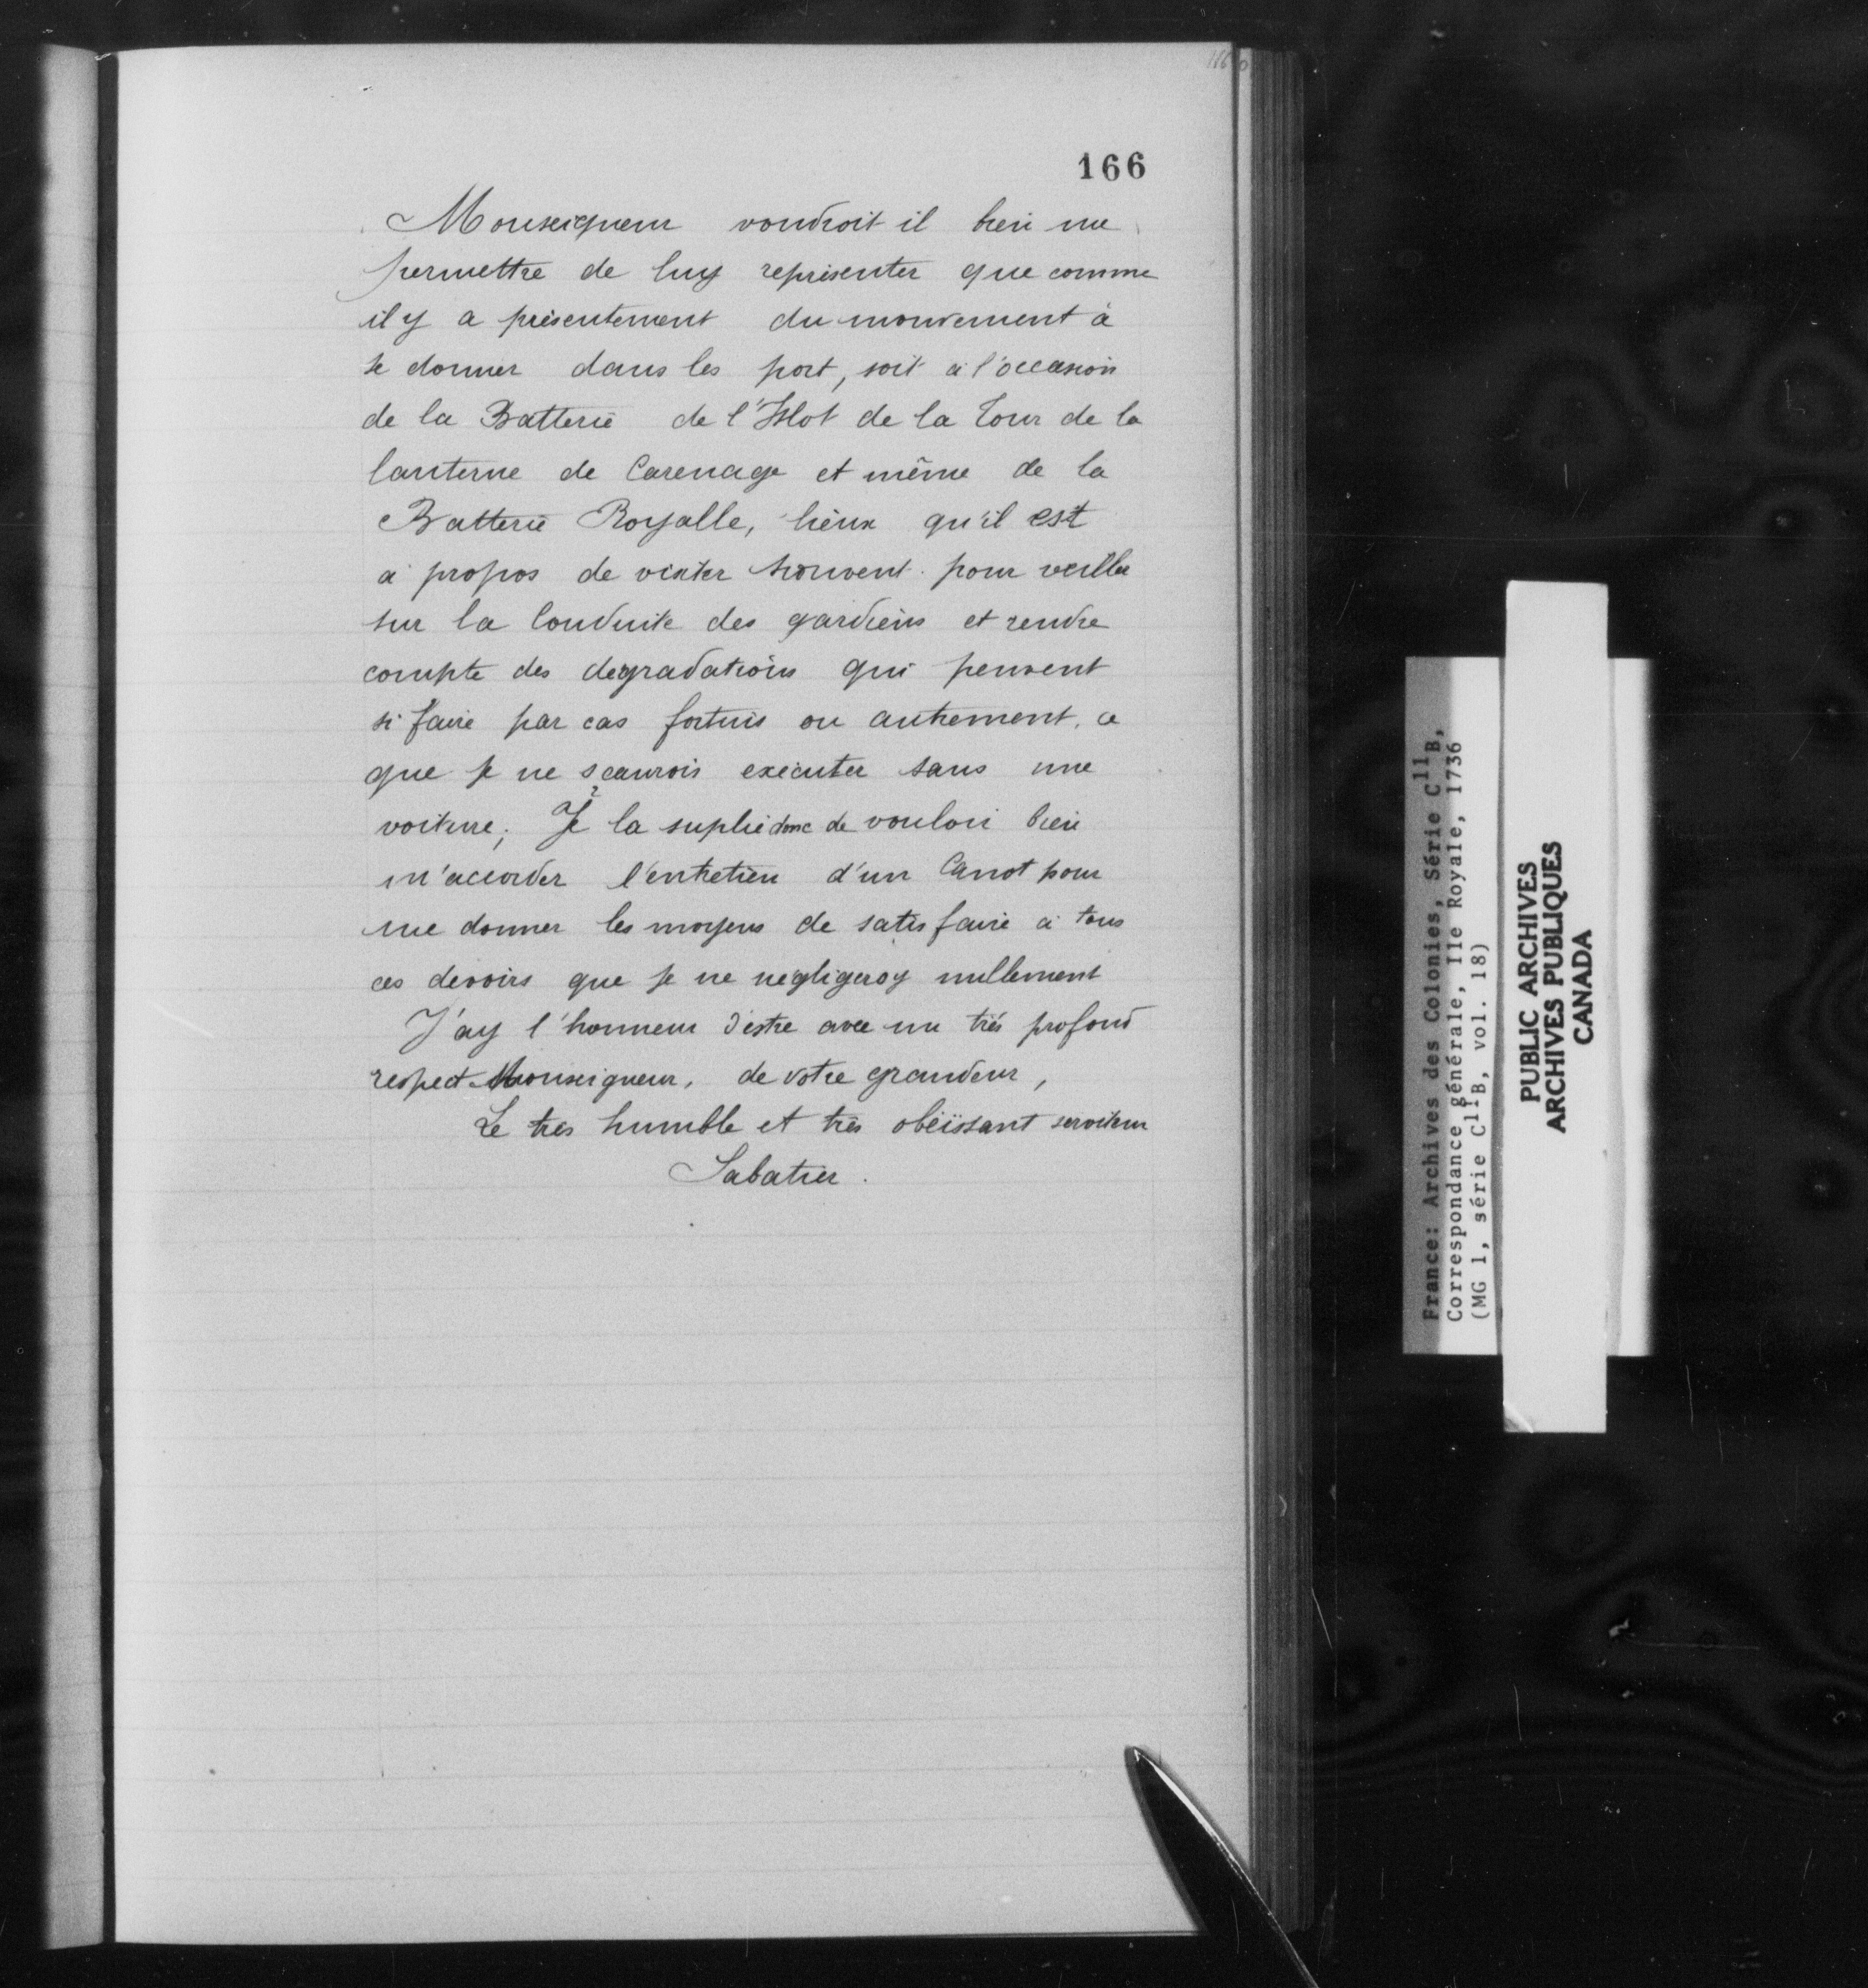 166
Monseigneur voudroit il bien me
permettre de luy représenter que comme
il y a présentement du mouvement à
se donner dans les port, soit à l'occasion
de la Batterie de l'Islot de la Tour de la
lanterne de Carenage et même de la
Batterie Royalle, lieux qu'il est
à propos de visiter souvent pour veiller
sur la Conduite des gardiens et rendre
compte des dégradations qui peuvent
si faire par cas fortuis ou autrement, ce
que je ne sçaurois executer sans une
voiture; Je la suplie donc de vouloir bien
m'accorder l'entretien d'un Canot pour
me donner les moyens de satisfaire à tous
ces devoirs que je ne négligeroy nullement
J'ay l'honneur d'estre avec un très profond
respect Monseigneur, de votre grandeur,
Le très humble et très obéissant serviteur
Sabatier.
France: Archives des Colonies, Série C11B,
Correspondance générale, Ile Royale, 1736
(MG 1, série C11B, vol. 18)
PUBLIC ARCHIVES
ARCHIVES PUBLIQUES
CANADA